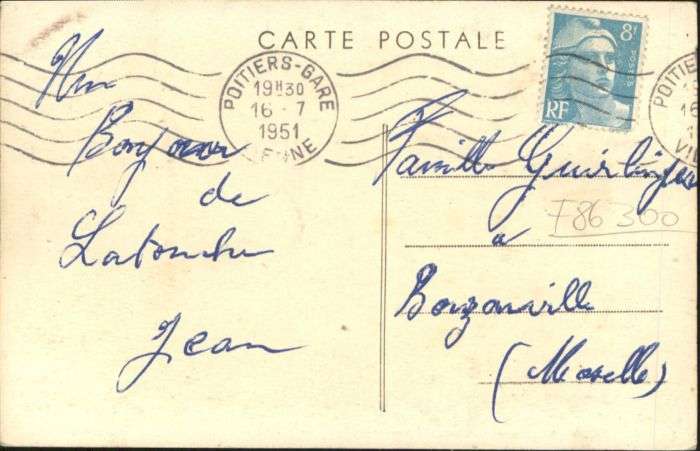 CARTE POSTALE
8F
RF
POITIERS-GARE
19H30
16-7
1951
VIENNE
Un
Bonjour
de
Latouche
Jean
Famille
à
Bouzonville
(Moselle)
F86 300